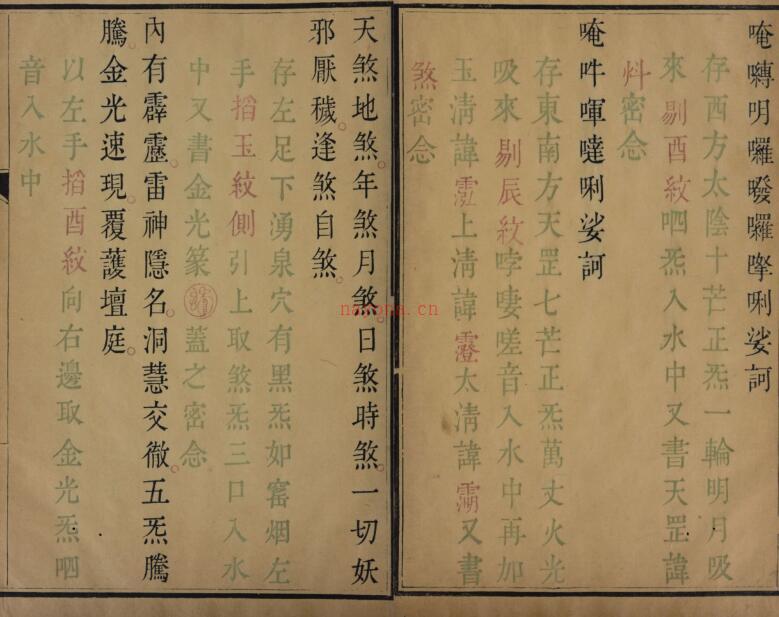 唵囀明囉𭊫囉㗚唎娑訶
存西方太陰十芒正炁一輪明月吸
來剔酉紋呬炁入水中又書天罡諱
密念
唵吽㖶噠唎娑訶
存東南方天罡七芒正炁萬丈火光
吸來剔辰紋哱嘍嗟音入水中再加
玉淸諱上淸諱太淸諱又書
煞密念
天煞地煞年煞月煞日煞時煞一切妖
邪厭穢逢煞自煞
存左足下湧泉穴有黑炁如窰烟左
手搯玉紋側引上取煞炁三口入水
中又書金光篆蓋之密念
內有霹靂雷神隱名洞慧交徹五炁騰
騰金光速現覆護壇庭
以左手搯酉紋向右邊取金光炁呬
音入水中
nayona.cn